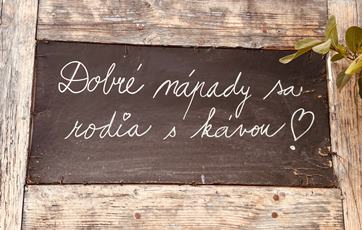 Dobré nápady sa
rodia s kávou♡